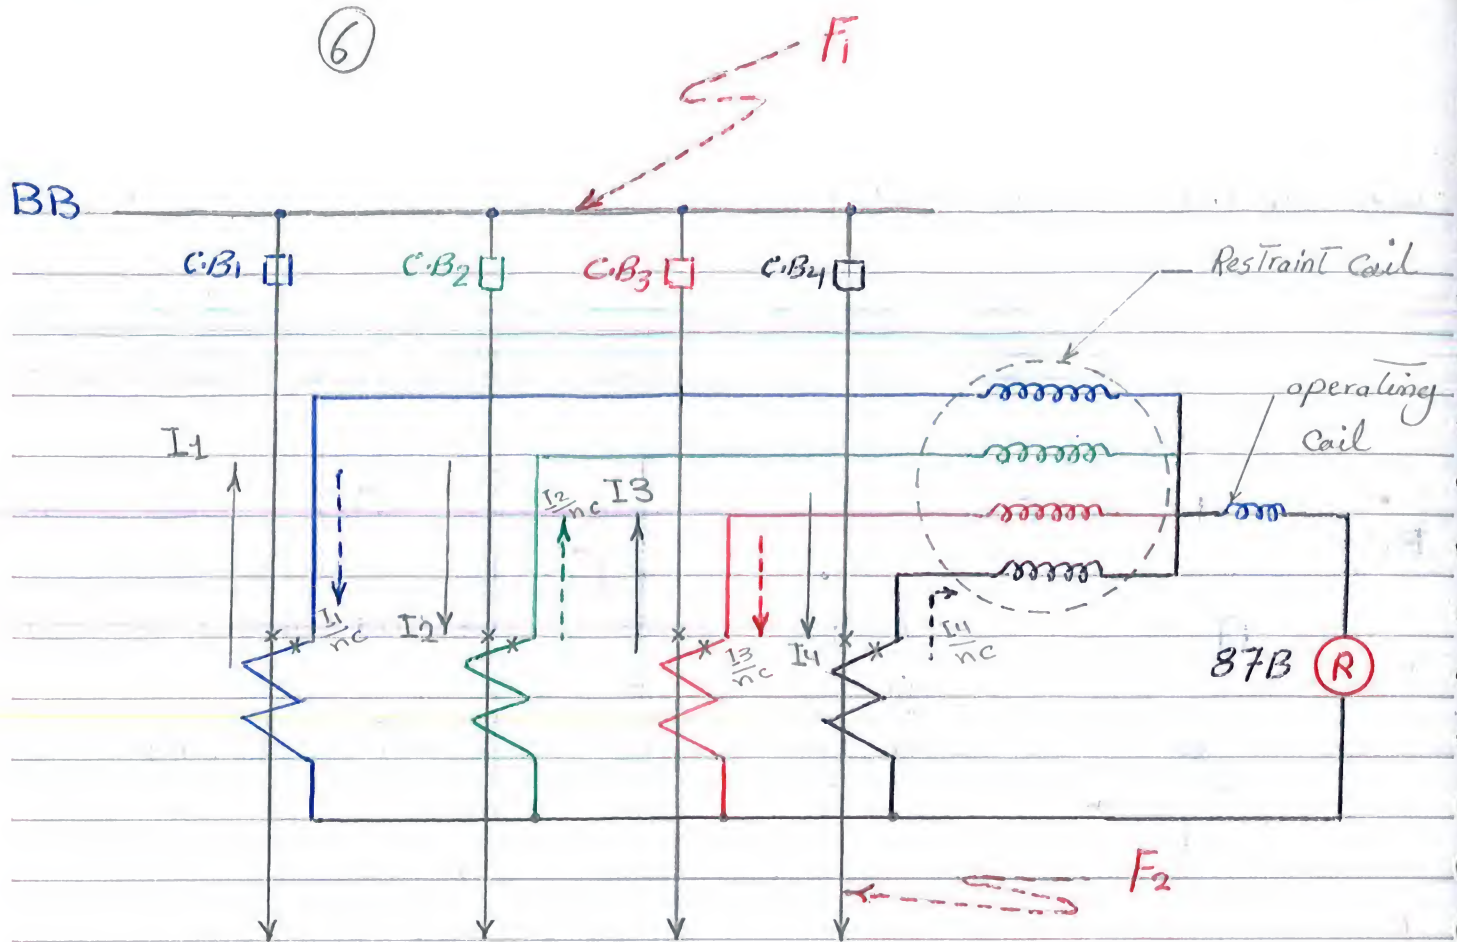 6
F1
BB
C.B1
C.B2
C.B3
C.B4
Restraint Cail
operating
Cail
I1
I2/nc
I3
I1/nc
I2
I3/nc
I4
I4/nc
87B
R
F2